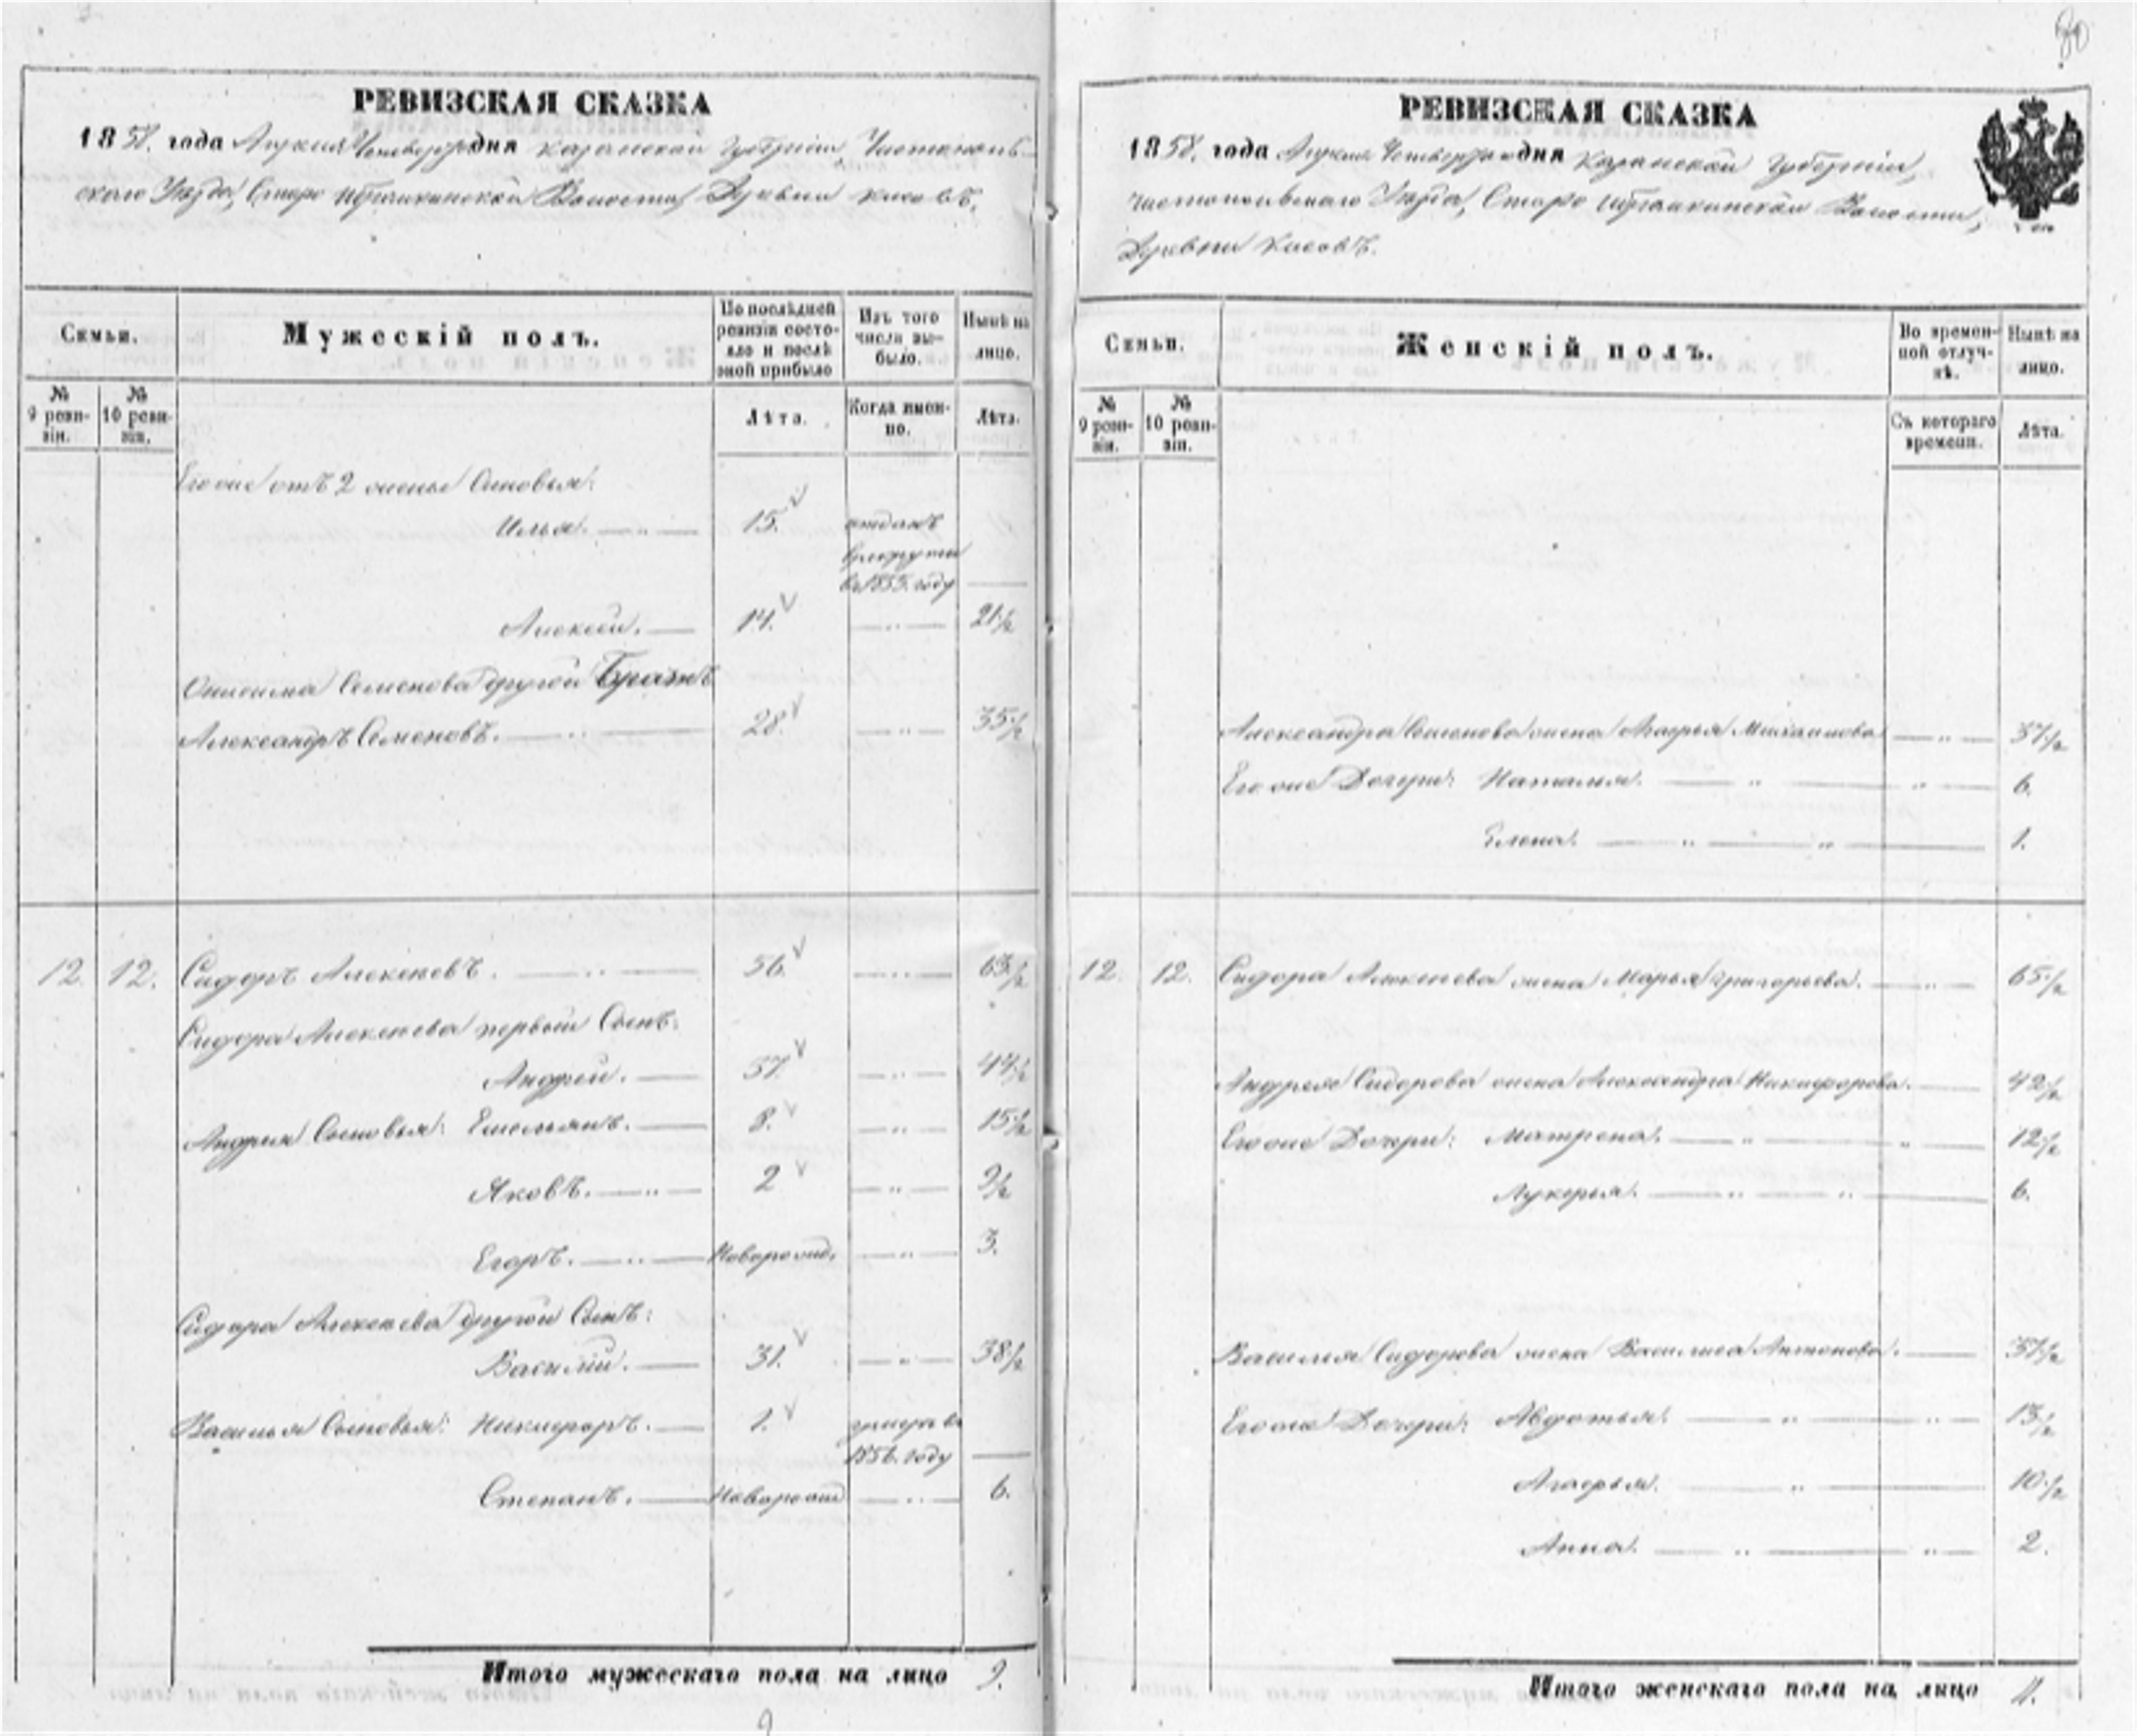 80
РЕВИЗСКАЯ СКАЗКА
1858. года Апреля Четвертого дня Казанской Губернiи, Чистополь-
скаго Уезда, Старо Волости, Деревни Кисовъ.
Семьи.
Мужескiй полъ.
По последней ревизiи состо-
яло и после
оной прибыло
Изъ того
числа вы-
было.
Ныне на
лицо.
№
9 реви-
зiи.
№
10 реви-
зiи.
Лѣта.
Когда имен-
но.
Лѣта.
Его же отъ 2 жены Сыновья:
Илья. 15. отданъ
в рекруты
в 1855. году
Алексей. 14. 21 1/2
Онисима Семенова другой Братъ
Александръ Семеновъ. 28. 35 1/2
12. 12. Сидоръ Алексеевъ. 56. 63 1/2
Сидора Алексеева первый Сынъ:
Андрей. 37. 44 1/2
Андрея Сыновья: Емельянъ. 8. 15 1/2
Яковъ. 2 9 1/2
Егоръ. Новорожд. 3.
Сидора Алексеева другой Сынъ:
Василiй. 31. 38 1/2
Василья Сыновья: Никифоръ. 1. умеръ в
1856. году
Степанъ. Новорожд 6.
Итого мужескаго пола на лицо 9.
9
РЕВИЗСКАЯ СКАЗКА
1858. года Апреля Четвертого дня Казанской Губернiи,
Чистопольскаго Уезда, Старо Волости,
Деревни Кисовъ.
Семьи.
Женскiй полъ.
Во времен-
ной отлуч-
кѣ.
Нынѣ на
лицо.
№
9 реви-
зiи.
№
10 реви-
зiи.
Съ котораго
времени.
Лѣта.
Александра Семенова жена Агафья Михаилова 37 1/2
Его же Дочери: Наталья. 6.
Елена. 1.
12. 12. Сидора Алексеева жена Марья Григорьева. 65 1/2
Андрея Сидорова жена Александра Никифорова. 42 1/2
Его же Дочери: Матрена. 12 1/2
Лукерья. 6.
Василья Сидорова жена Василиса Антонова. 37 1/2
Его же Дочери: Авдотья. 13 1/2
Агафья. 10 1/2
Анна. 2.
Итого женскаго пола на лицо 11.